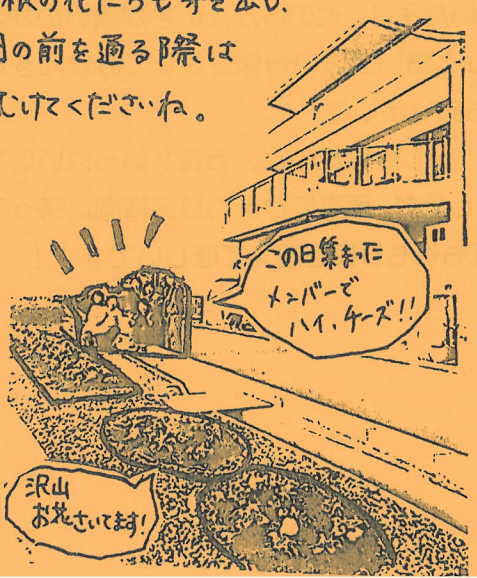 根の花たちも芽を出し、
の前を通る際は
むけてくださいね。
この日集まった
メンバーで
ハイ、チーズ!!
沢山
お花さいてます!